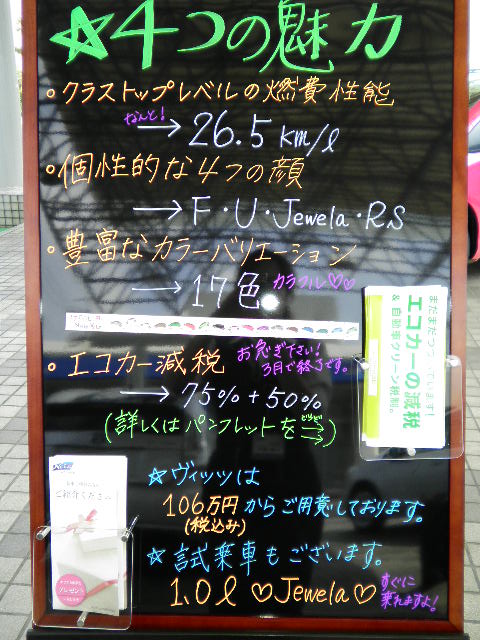 ☆4つの魅力
・クラストップレベルの燃費性能
なんと!
→26.5km/ℓ
・個性的な4つの顔
→F・U・Jewela・RS
・豊富なカラーバリエーション
→17色 カラフル♡♡
・エコカー減税 お急ぎ下さい!
3月で終了です。
→75%+50%
(詳しくはパンフレットを どうぞ→)
まだまだつづいています!
エコカーの減税
&自動車グリーン税制。
☆ヴィッツは
106万円からご用意しております。
(税込み)
☆試乗車もございます。
1.0ℓ ♡Jewela♡ すぐに
乗れますよ!
ご紹介ください
プレゼント